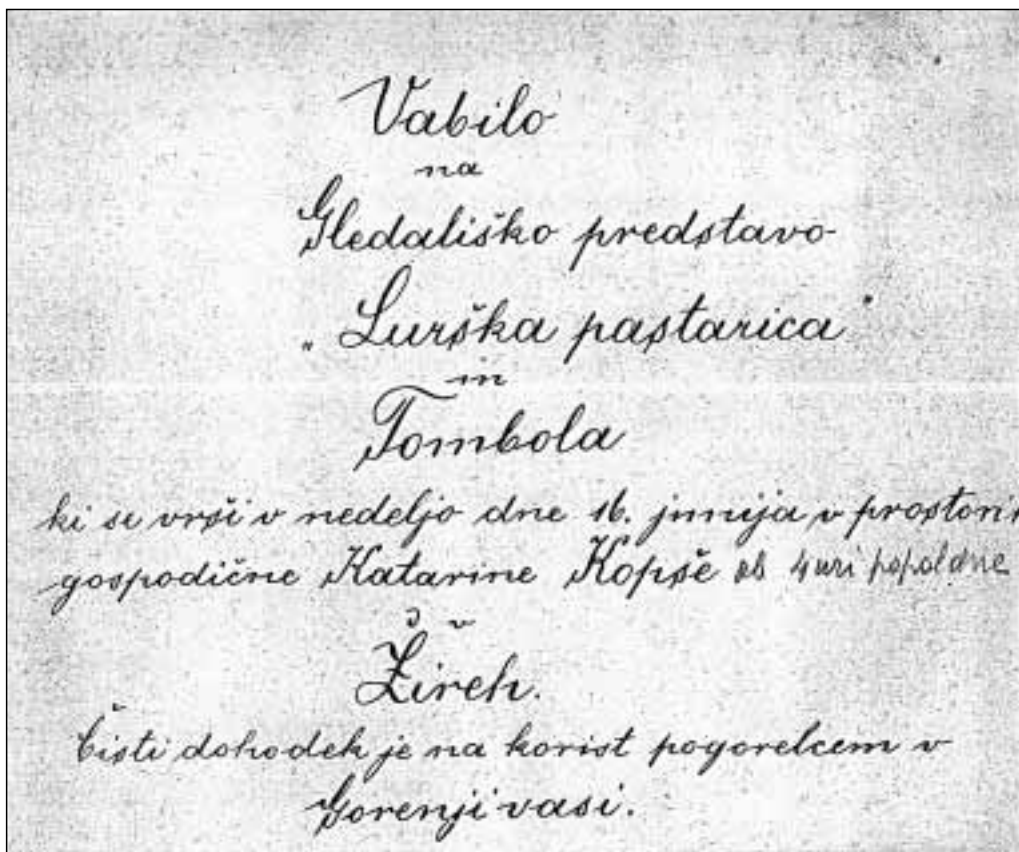 Vabilo
na
Gledališko predstavo
„Lurška pastarica"
in
Tombola
ki se vrši v nedeljo dne 16. junija v
gospodične Katarine Kopše ob 4 uri popoldne
v
Žireh.
Čisti dohodek je na korist pogorelcem v
Gorenji vasi.